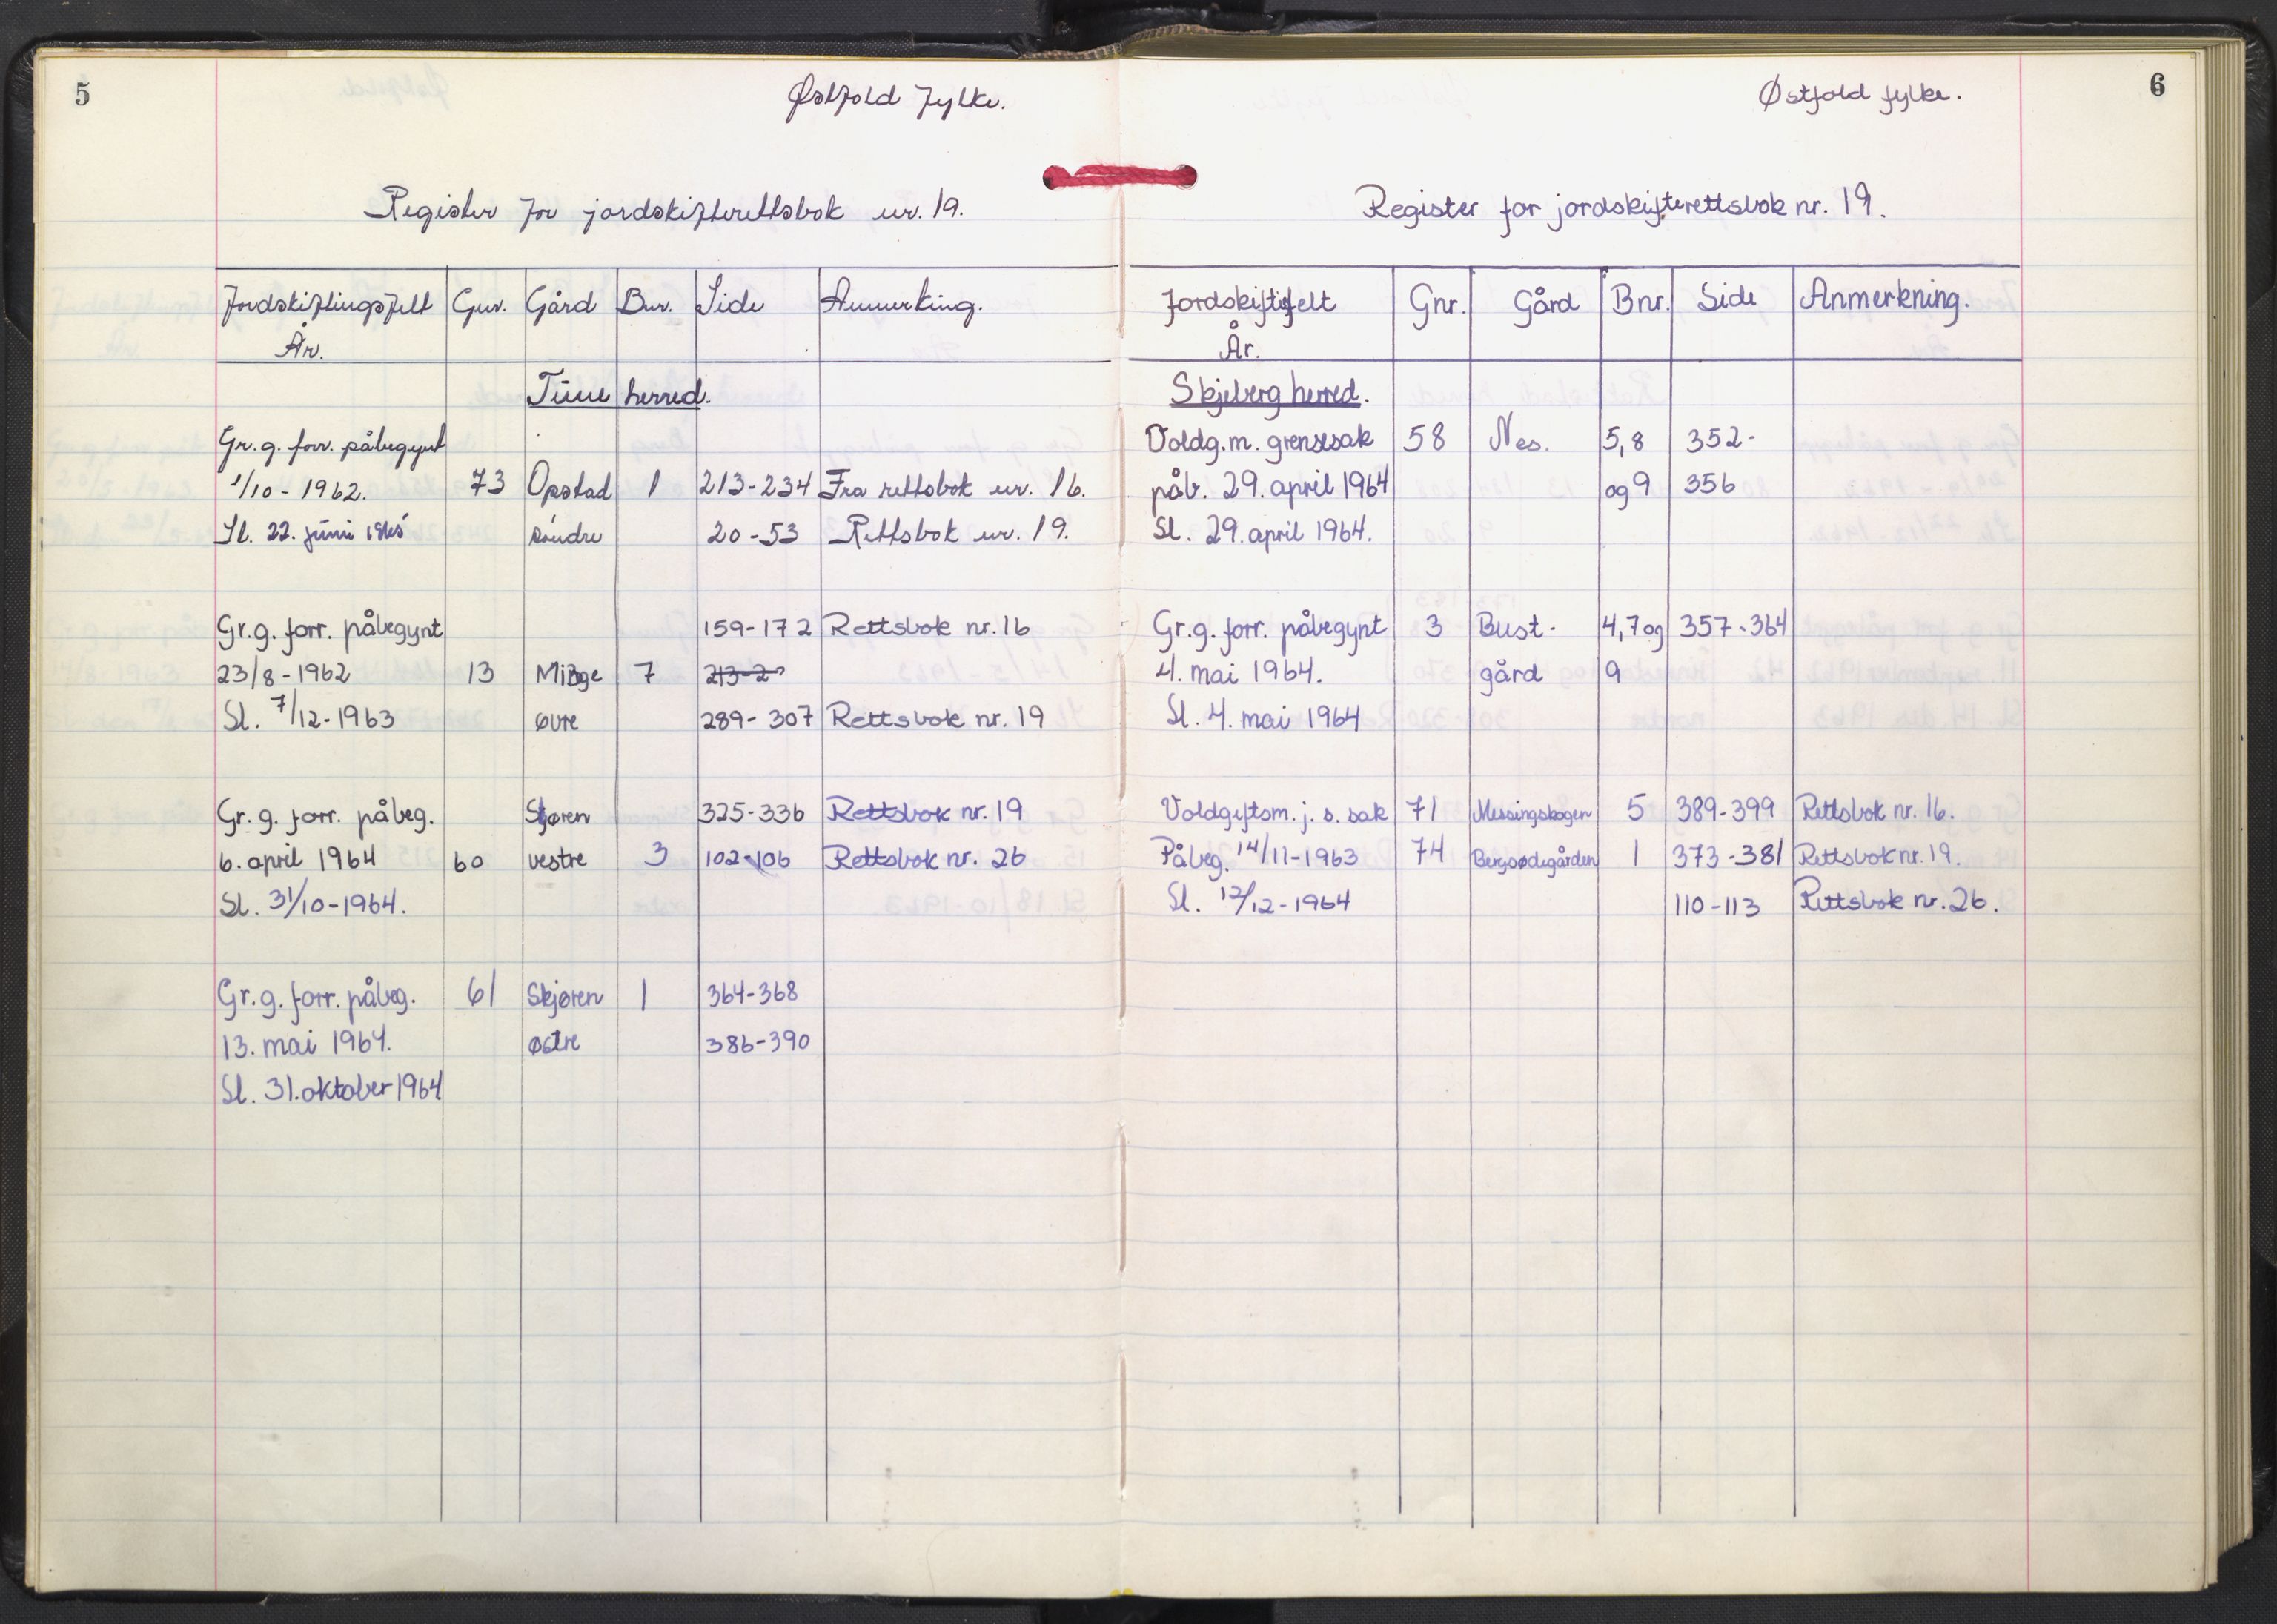 5
Østfold fylke.
Register for jordskifterettsbok nr. 19.
Jordskiftingsfelt År. Gnr. Gård Bnr. Side Anmerking.
Tune herred.
Gr. g. forr. påbegynt
1/10 - 1962. 73 Opstad 1 213-234 Fra rettsbok nr. 16.
Sl. 22. juni søndre 20-53 Rettsbok nr. 19.
Gr. g. forr. påbegynt 159-172 Rettsbok nr. 16
23/8 - 1962 13 Minge 7 213-2
Sl. 7/12-1963 øvre 289-307 Rettsbok nr. 19
Gr. g. forr. påbeg. Skjøren 325-336 Rettsbok nr. 19
6. april 1964 60 vestre 3 102-106 Rettsbok nr. 26
Sl. 31/10-1964.
Gr. g. forr. påbeg. 61 Skjøren 1 364-368
13. mai 1964. østre 386-390
Sl. 31. oktober 1964
6
Østfold fylke.
Register for jordskifterettsbok nr. 19.
Jordskiftefelt År. Gnr. Gård Bnr. Side Anmerkning.
Skjeberg herred.
Voldg. m. grensesak 58 Nes. 5,8 352-
påb. 29. april 1964 og 9 356
Sl. 29. april 1964.
Gr. g. forr. påbegynt 3 Bust- 4,7 og 357-364
4. mai 1964. gård 9
Sl. 4. mai 1964
Voldgiftsm. j. s. sak 71 Messingskogen 5 389-399 Rettsbok nr. 16.
Påbeg. 14/11-1963 74 Bergsødegården 1 373-381 Rettsbok nr. 19.
Sl. 12/12-1964 110-113 Rettsbok nr. 26.